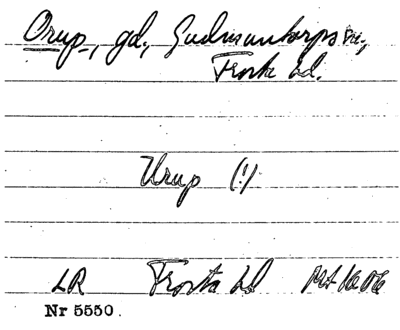 Orup, gd, Gudmuntorps sn,
Frosta hd.
Urup (!)
LR Frosta hd
Nr 5550.